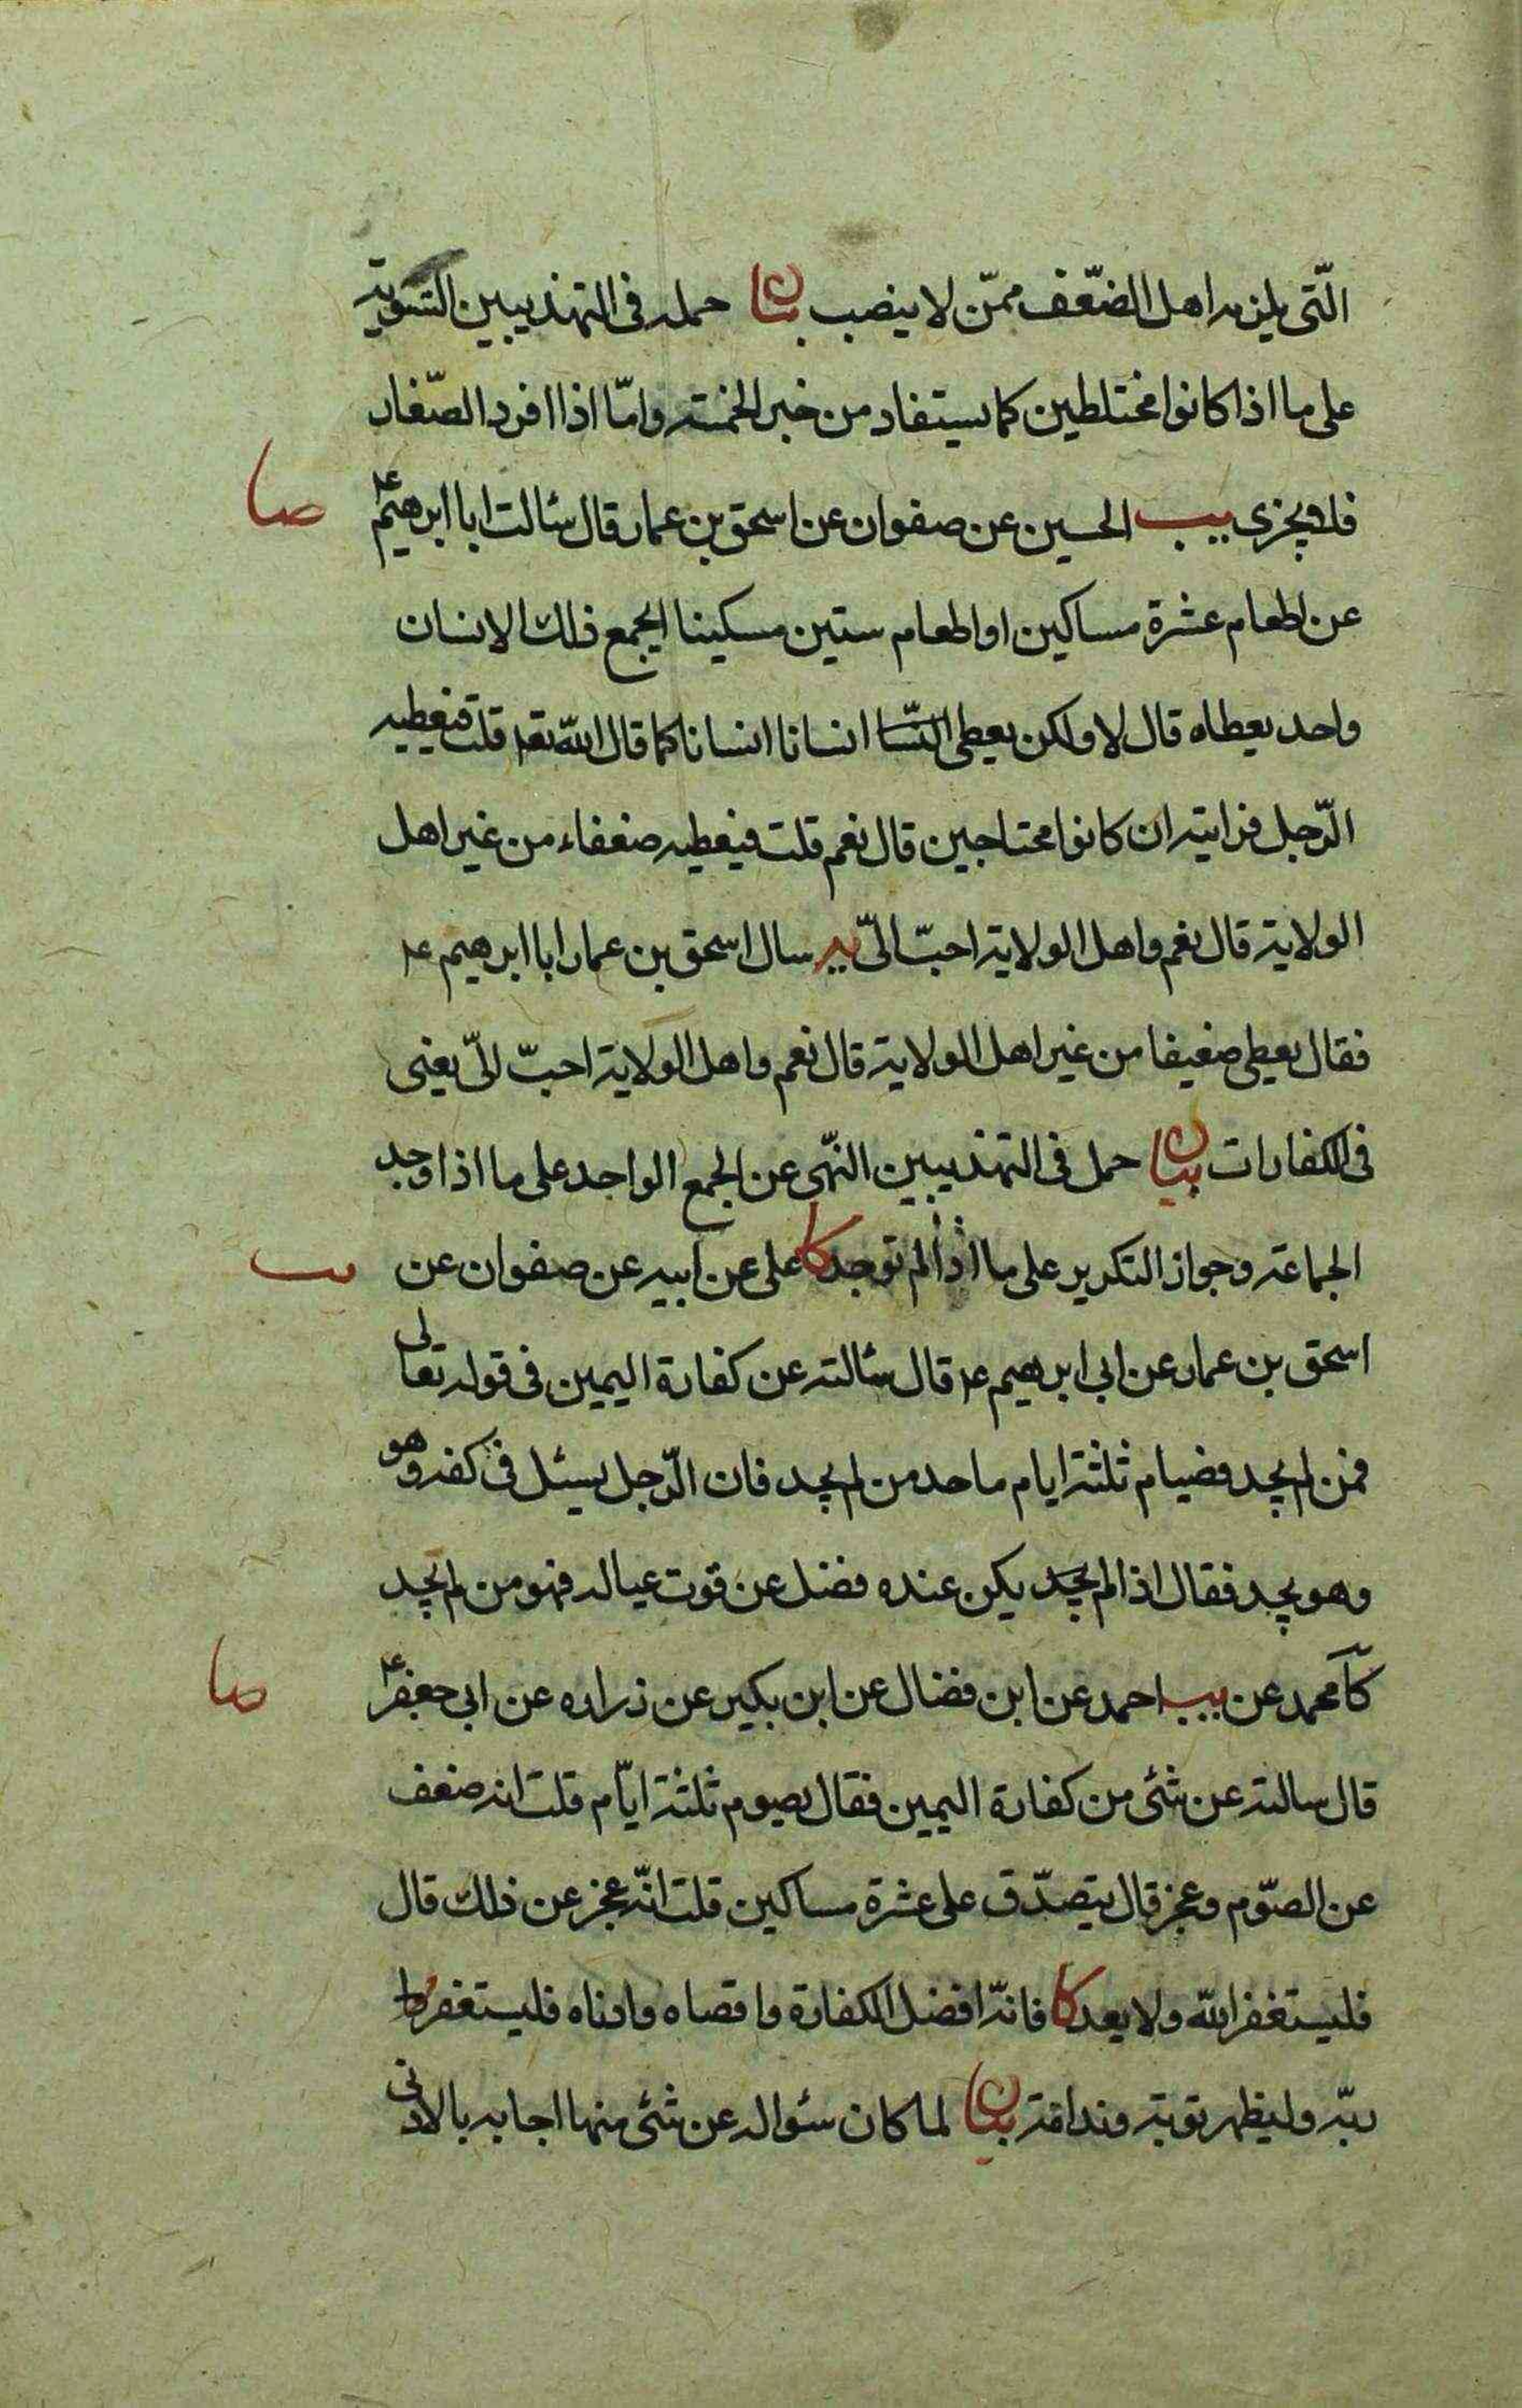 الّتى يلزمه اهل الضّعف ممّن لا ينصب بيان حمله فى التهذيبين التسوية
على ما اذا كانوا مختلطين كما يستفاد من خبر الخمسة وامّا اذا افرد الصّغار
فلا يجزى يب الحسين عن صفوان عن اسحق بن عمار قال سئالت ابا ابرهيم ع
صا
عن اطعام عشرة مساكين او اطعام ستين مسكينا ايجمع ذلك الانسان
واحد يعطاه قال لا ولكن يعطى انسانا انسانا كما قال الله تعا قلت فيعطيه
الرّجل قرابته ان كانوا محتاجين قال نعم قلت فيعطيه ضعفاء من غير اهل
الولاية قال نعم واهل الولاية احبّ الىّ يه سال اسحق بن عمار ابا ابرهيم ع
فقال يعطى ضعيفا من غير اهل الولاية قال نعم واهل الولاية احبّ الىّ يعنى
فى الكفارات بيان حمل فى التهذيبين النّهى عن الجمع الواحد على ما اذا وجد
الجماعة وجواز التكرير على ما اذا لم توجد كا على عن ابيه عن صفوان عن
يب
اسحق بن عمار عن ابى ابرهيم ع قال سئالته عن كفارة اليمين فى قوله تعالى
فمن لم يجد فصيام ثلثة ايام ماحد من لم يجد فان الرّجل يسئل فى كفه وهو
وهو يجد فقال اذا لم يجد يكن عنده فضل عن قوت عياله فهو من لم يجد
كا محمد عن يب احمد عن ابن فضال عن ابن بكير عن زراره عن ابى جعفر ع
صا
قال سالته عن شئى من كفارة اليمين فقال يصوم ثلثة ايّام قلت انه ضعف
عن الصّوم وعجز قال يتصدّق على عشرة مساكين قلت انّه عجز عن ذلك قال
فليستغفر الله ولا يعد كا فانّه افضل الكفارة واقصاه وادناه فليستغفر
ربّه وليظهر توبة وندامة بيان لما كان سئواله عن شئى منها اجابه بالادنى